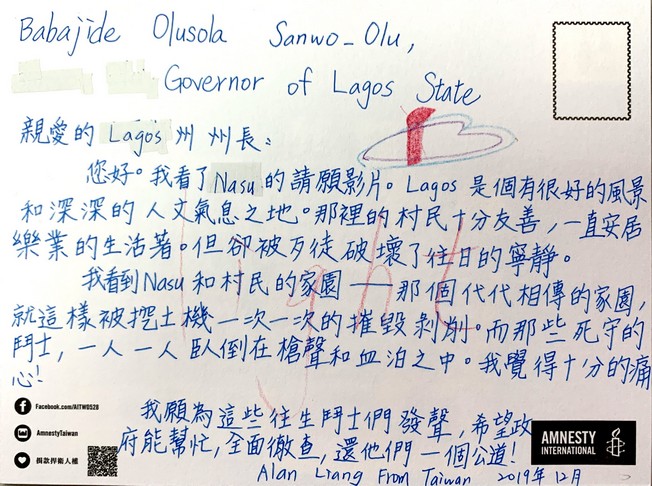 Babajide Olusola Sanwo-Olu,
Governor of Lagos State
親愛的 Lagos 州 州長：
您好。我看了 Nasu 的請願影片。Lagos 是個有很好的風景
和深深的人文氣息之地。那裡的村民十分友善，一直安居
樂業的生活著。但卻被歹徒破壞了往日的寧靜。
我看到 Nasu 和村民的家園——那個代代相傳的家園，
就這樣被挖土機一次一次的摧毀剝削。而那些死守的
鬥士，一人一人臥倒在槍聲和血泊之中。我覺得十分的痛
心！
我願為這些往生鬥士們發聲，希望政
府能幫忙，全面徹查，還他們一個公道！
Alan Liang From Taiwan 2019年12月
light
Facebook.com/AITW0528
AmnestyTaiwan
捐款捍衛人權
AMNESTY
INTERNATIONAL